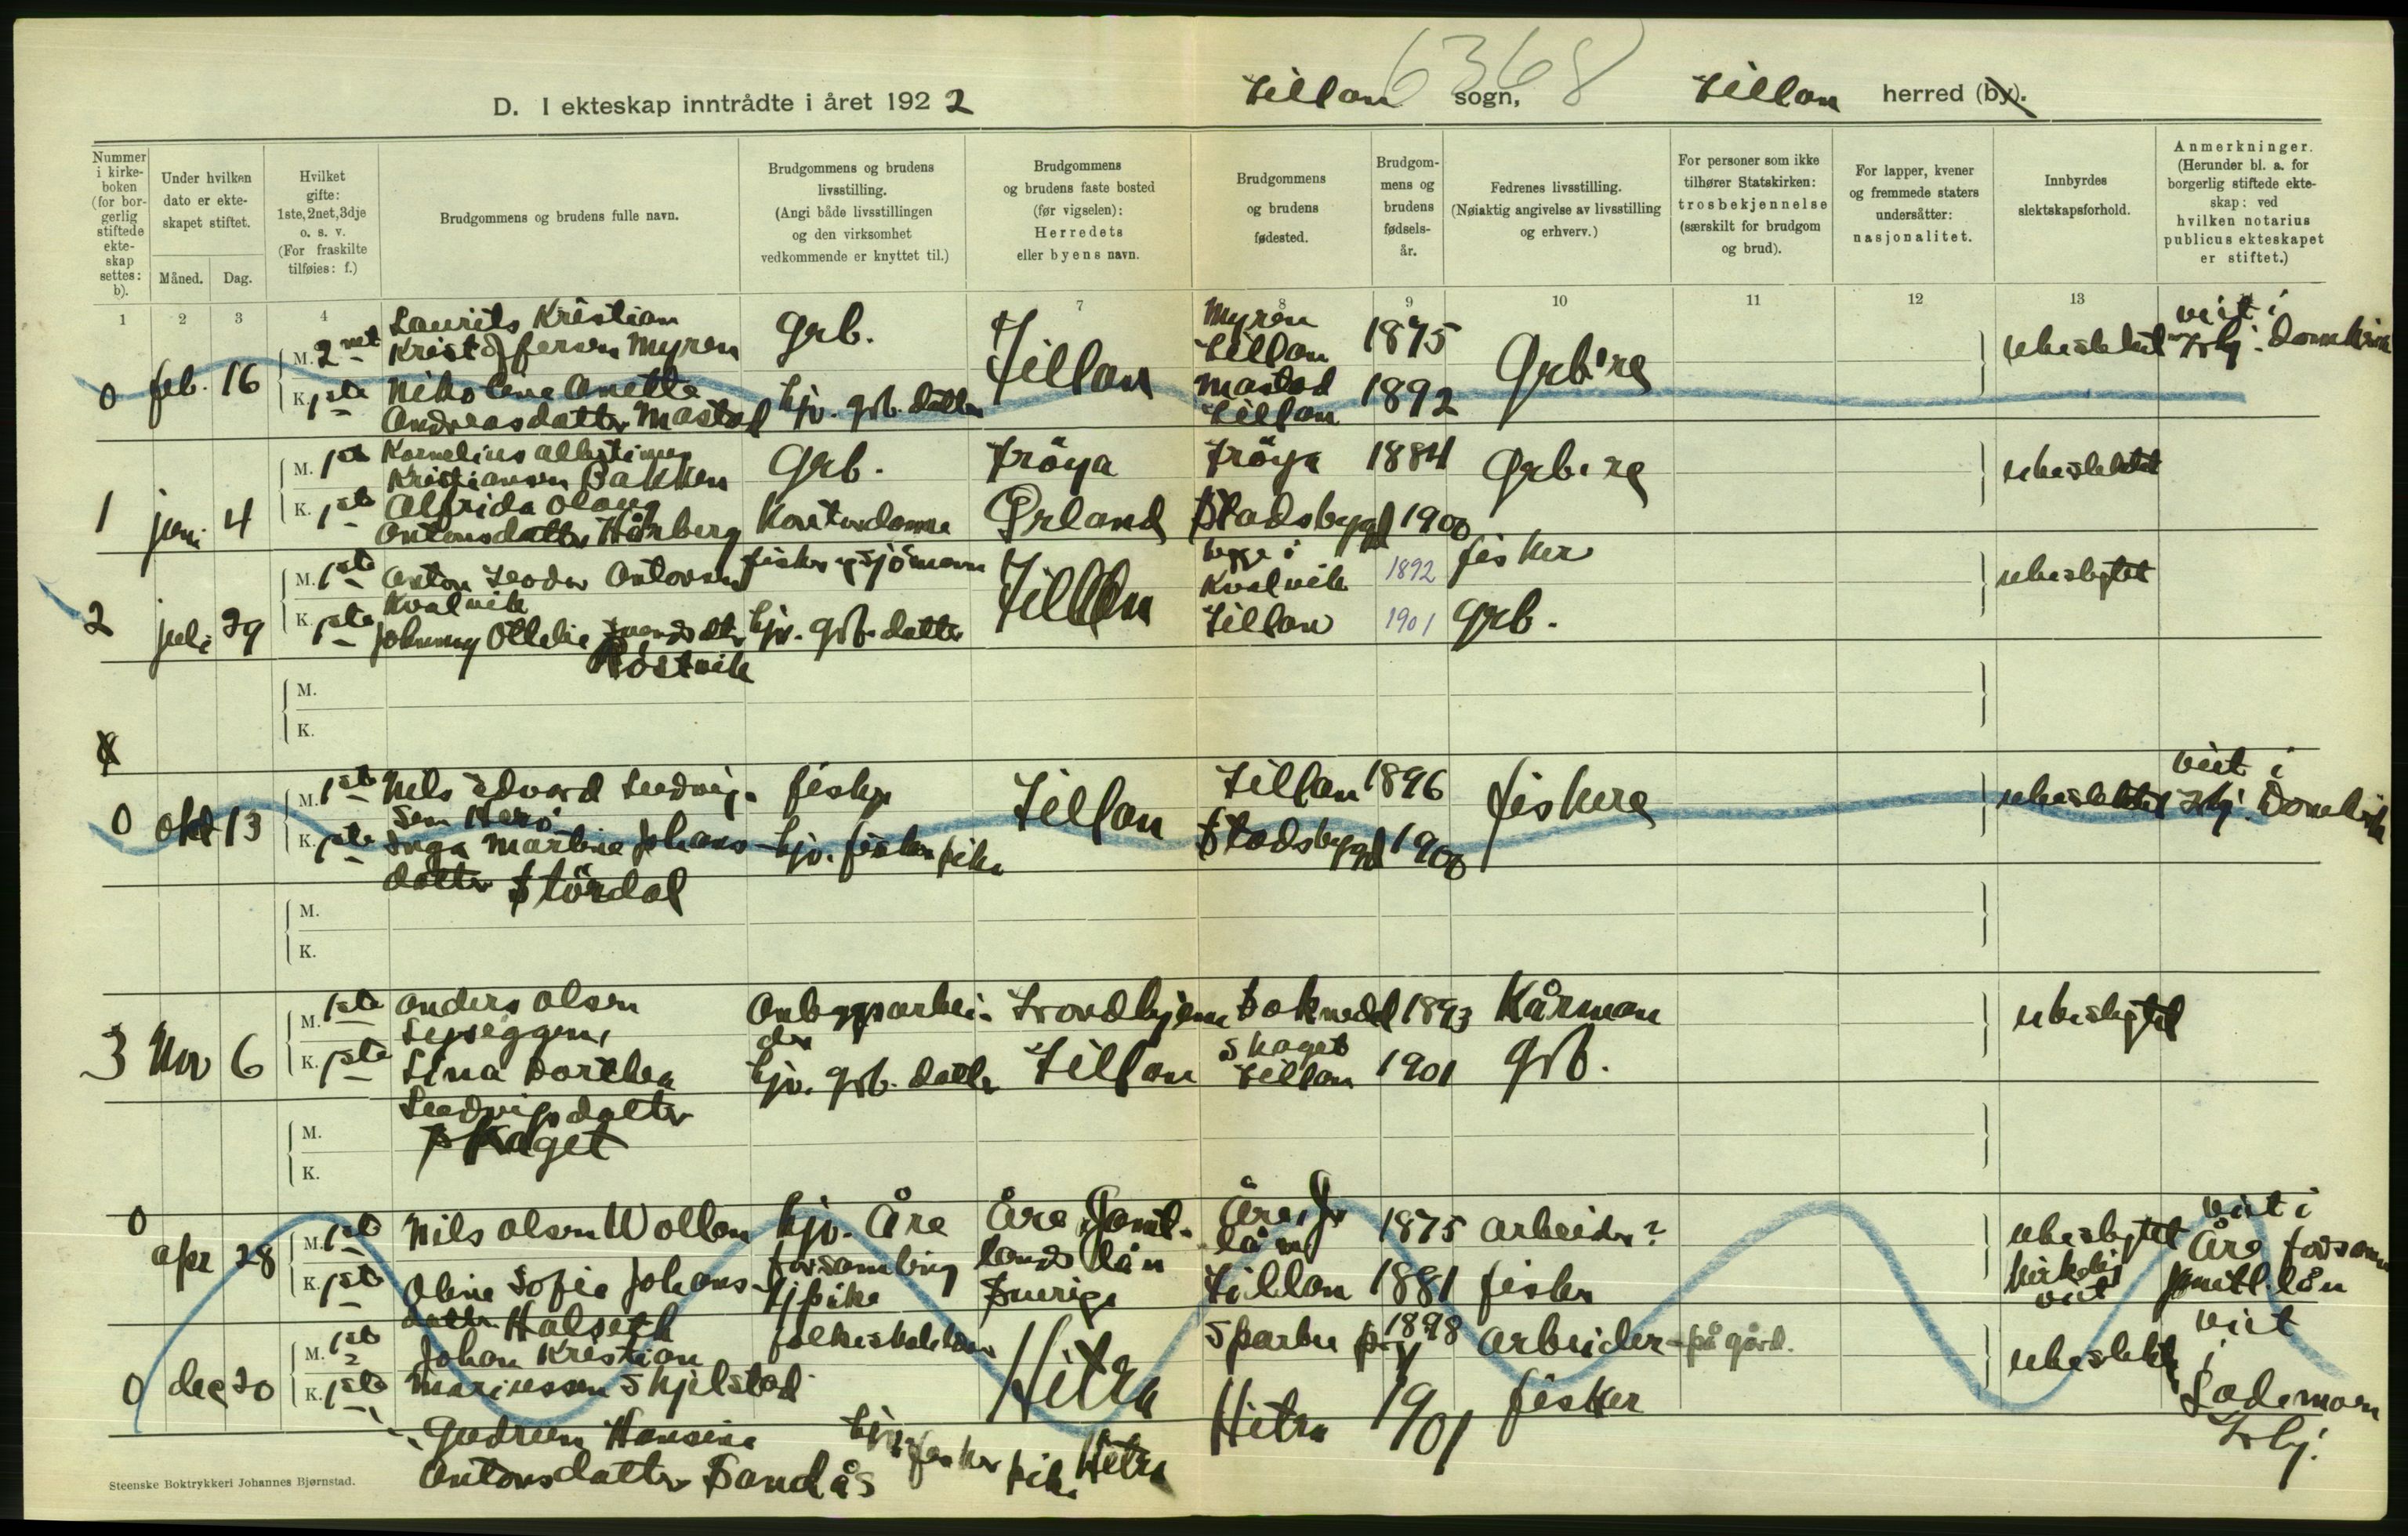 6368
D. I ekteskap inntrådte i året 1922 Fillan sogn, Fillan herred (by).
Nummer i kirkeboken (for borgerlig stiftede ekteskap settes: b).
Under hvilken dato er ekteskapet stiftet.
Måned. Dag.
Hvilket gifte: 1ste, 2net, 3dje o. s. v. (For fraskilte tilføies: f.)
Brudgommens og brudens fulle navn.
Brudgommens og brudens livsstilling. (Angi både livsstillingen og den virksomhet vedkommende er knyttet til.)
Brudgommens og brudens faste bosted (før vigselen): Herredets eller byens navn.
Brudgommens og brudens fødested.
Brudgommens og brudens fødselsår.
Fedrenes livsstilling. (Nøiaktig angivelse av livsstilling og erhverv.)
For personer som ikke tilhører Statskirken: trosbekjennelse (særskilt for brudgom og brud).
For lapper, kvener og fremmede staters undersåtter: nasjonalitet.
Innbyrdes slektskapsforhold.
Anmerkninger. (Herunder bl. a. for borgerlig stiftede ekteskap: ved hvilken notarius publicus ekteskapet er stiftet.)
1 2 3 4 7 8 9 10 11 12 13
0 feb. 16 M. 2net Laurits Kristian Kristofersen Myren Grb. Fillan Myren Fillan 1875 Grb.re ubeslektet viet i Trhj. Domkirke
K. 1ste Nikoline Anette Andreasdatter Mastad hjv. grb. datter Mastad Fillan 1892
1 juni 4 M. 1ste Kornelius Kristiansen Bakken Grb. Fröya Fröya 1884 Grb.re ubeslektet
K. 1ste Alfrida Olaug Antonsdatter Hårberg Kontordame Ørland Stadsbygd 1900
2 juli 29 M. 1ste Anton Teodor Antonsen Kvalvik fisker sjömann Fillan begge i Kvalvik 1892 fisker ubeslegtet
K. 1ste Johanny Ottelie hjv. grb. datter Fillan 1901 Grb.
M.
K.
0 okt 13 M. 1ste Nils Edvard Ludvigsen fisker Fillan Fillan 1896 fiskere ubeslektet viet i Trhj. Domkirke
K. 1ste Inga Martine Johansdatter Stördal hjv. fisker pike Stadsbygd 1900
M.
K.
3 Nov 6 M. 1ste Anders Olsen Anleggsarbeider Trondhjem Soknedal 1893 Kårman ubeslegtet
K. 1ste Lina Dorthea Ludvigsdatter Skaget hjv. grb. datter Fillan Skaget Fillan 1901 Grb.
M.
K.
0 apr 28 M. 1ste Nils Olsen Wollan hjv. Åre forsamling Åre Jämtlands län Sverige Åre, J. län 1875 Arbeider? ubeslegtet kirkelig viet viet i Åre forsaml. län
K. 1ste Oline Sofie Johansdatter Halseth hj pike Fillan 1881 fisker
0 dec 20 M. 1ste Johan Kristian Mariussen Skjelstad folkeskolelærer Hitra Sparbu 1898 Arbeider på gård. ubeslektet viet i Lademoen Trhj.
K. 1ste Gudrun Hansine Antonsdatter Sandås hjv. fisker pike Hitra Hitra 1901 fisker
Steenske Boktrykkeri Johannes Bjørnstad.